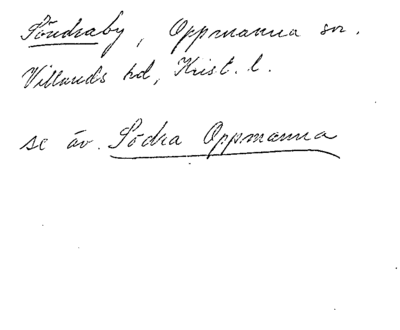 Söndraby, Oppmanna sn.
Villands hd, Krist. l.
se äv. Södra Oppmanna